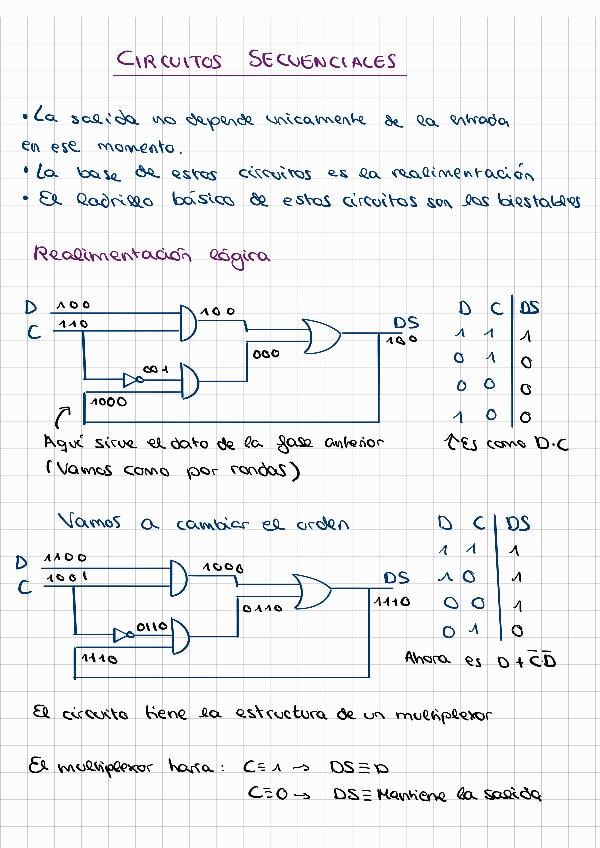 CIRCUITOS SECUENCIALES
• La salida no depende unicamente de la entrada
en ese momento.
• La base de estos circuitos es la realimentación
• El ladrillo básico de estos circuitos son los biestables
Realimentación lógica
D 100
C 110
100
001
000
1000
DS
100
D C DS
1 1 1
0 1 0
0 0 0
1 0 0
Aquí sirve el dato de la fase anterior
(Vamos como por rondas)
↑Es como D·C
Vamos a cambiar el orden
D 1100
C 1001
1000
0110
0110
1110
DS
1110
D C DS
1 1 1
1 0 1
0 0 1
0 1 0
Ahora es D + C̅D̅
El circuito tiene la estructura de un multiplexor
El multiplexor haría: C≡1 → DS≡D
C≡0 → DS≡Mantiene la salida